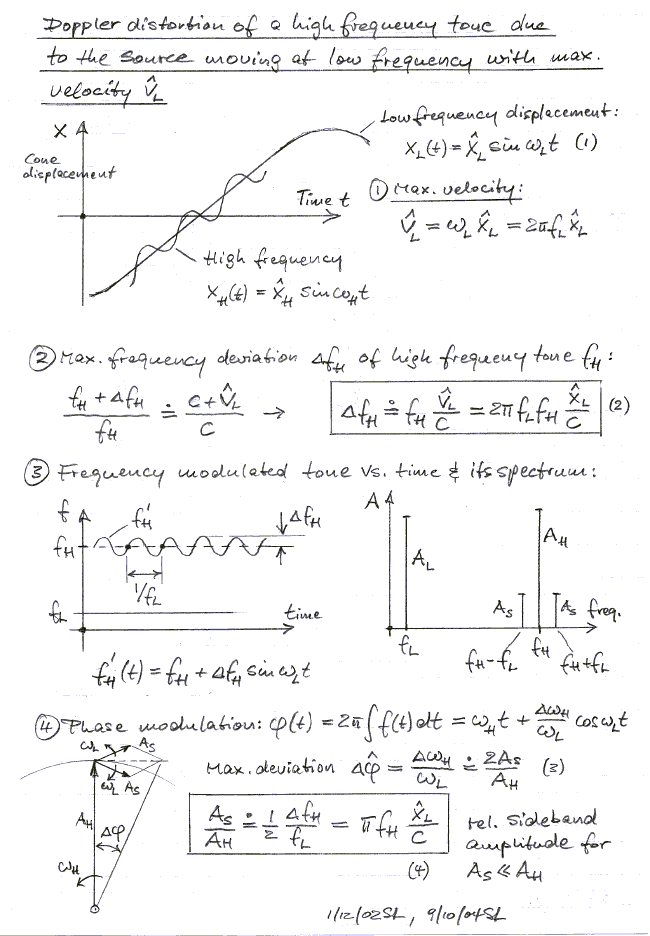 Doppler distortion of a high frequency tone due
to the source moving at low frequency with max.
velocity V̂_L
X
Cone
displacement
Low frequency displacement:
x_L(t) = x̂_L sin ω_L t (1)
Time t
① Max. velocity:
V̂_L = ω_L x̂_L = 2πf_L x̂_L
High frequency
x_H(t) = x̂_H sin ω_H t
② Max. frequency deviation Δf_H of high frequency tone f_H:
(f_H + Δf_H)/f_H ≐ (C + V̂_L)/C → Δf_H ≐ f_H V̂_L/C = 2π f_L f_H x̂_L/C (2)
③ Frequency modulated tone vs. time & its spectrum:
f
f_H'
Δf_H
f_H
1/f_L
f_L
time
f_H'(t) = f_H + Δf_H sin ω_L t
A
A_L
A_H
A_S
A_S
freq.
f_L
f_H-f_L
f_H
f_H+f_L
④ Phase modulation: φ(t) = 2π∫f(t)dt = ω_H t + Δω_H/ω_L cos ω_L t
ω_L
A_S
ω_L
A_S
A_H
Δφ
ω_H
Max. deviation Δφ̂ = Δω_H/ω_L ≐ 2A_S/A_H (3)
A_S/A_H ≐ 1/2 Δf_H/f_L = π f_H x̂_L/C
(4)
rel. sideband
amplitude for
A_S ≪ A_H
1/12/02SL, 9/10/04SL